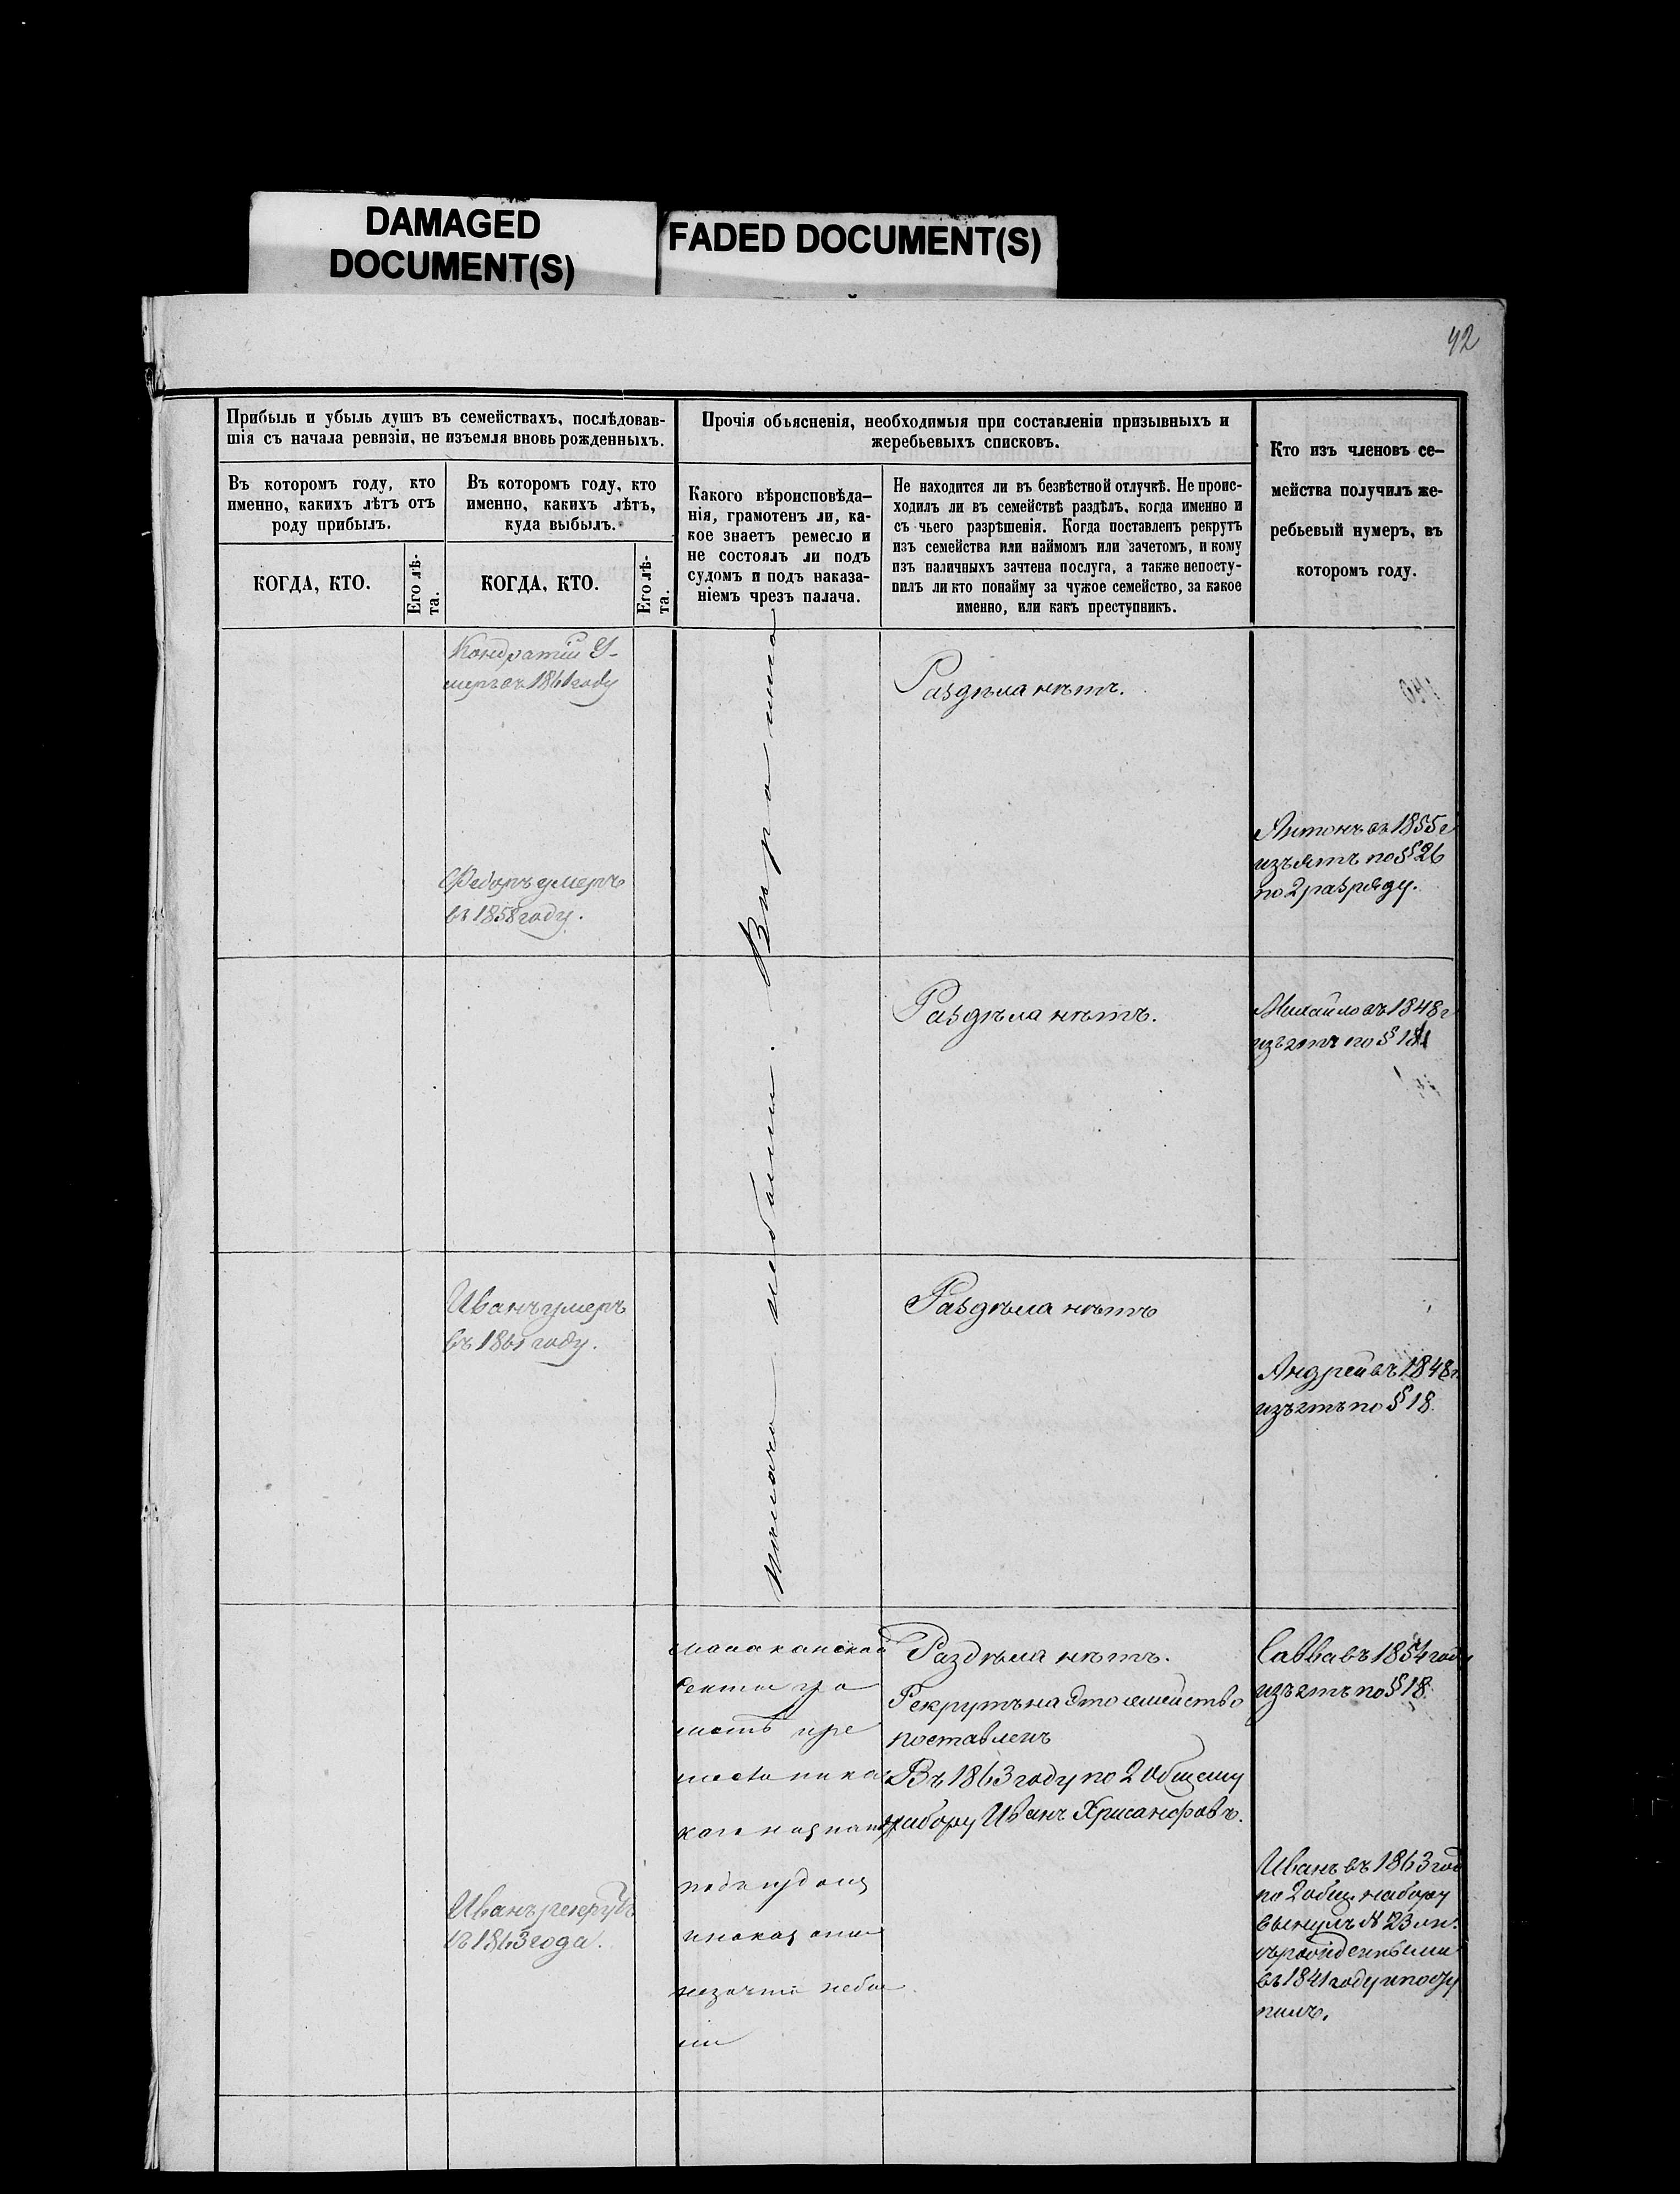 DAMAGED
DOCUMENT(S)
FADED DOCUMENT(S)
42
Прибыль и убыль душъ въ семействахъ, послѣдовав-
шія съ начала ревизіи, не изъемля вновь рожденныхъ.
Въ которомъ году, кто
именно, какихъ лѣтъ отъ
роду прибылъ.
Въ которомъ году, кто
именно, какихъ лѣтъ,
куда выбылъ.
КОГДА, КТО.
Его лѣ-
та.
КОГДА, КТО.
Его лѣ-
та.
Прочія объясненія, необходимыя при составленіи призывныхъ и
жеребьевыхъ списковъ.
Какого вѣроисповѣда-
нія, грамотенъ ли, ка-
кое знаетъ ремесло и
не состоялъ ли подъ
судомъ и подъ наказа-
ніемъ чрезъ палача.
Не находится ли въ безвѣстной отлучкѣ. Не проис-
ходилъ ли въ семействѣ раздѣлъ, когда именно и
съ чьего разрѣшенія. Когда поставленъ рекрутъ
изъ семейства или наймомъ или зачетомъ, и кому
изъ наличныхъ зачтена послуга, а также непосту-
пилъ ли кто понайму за чужое семейство, за какое
именно, или какъ преступникъ.
Кто изъ членовъ се-
мейства получилъ же-
ребьевый нумеръ, въ
которомъ году.
Кондратій У-
меръ въ 1861 году
Раздѣла нѣтъ.
Антонъ въ 1855 г
изъятъ по § 26
по 2 разряду.
Федоръ умеръ
въ 1858 году.
Раздѣла нѣтъ.
Михайло въ 1848 г
изъятъ по § 18
Иванъ умеръ
въ 1861 году.
Раздѣла нѣтъ
Андрей въ 1848 г
изъятъ по § 18
небыли
Малаканской
секты
Раздѣла нѣтъ.
Рекрутъ на это семейство
поставленъ
Въ 1863 году по 2 общему
набору Иванъ Хрисанфовъ.
Савва въ 1854 году
изъятъ по § 18
Иванъ рекрутъ
въ 1863 года.
Иванъ въ 1863 год
по 2 общ. набору
вынулъ № 23
въ 1841 году и посту
пилъ.